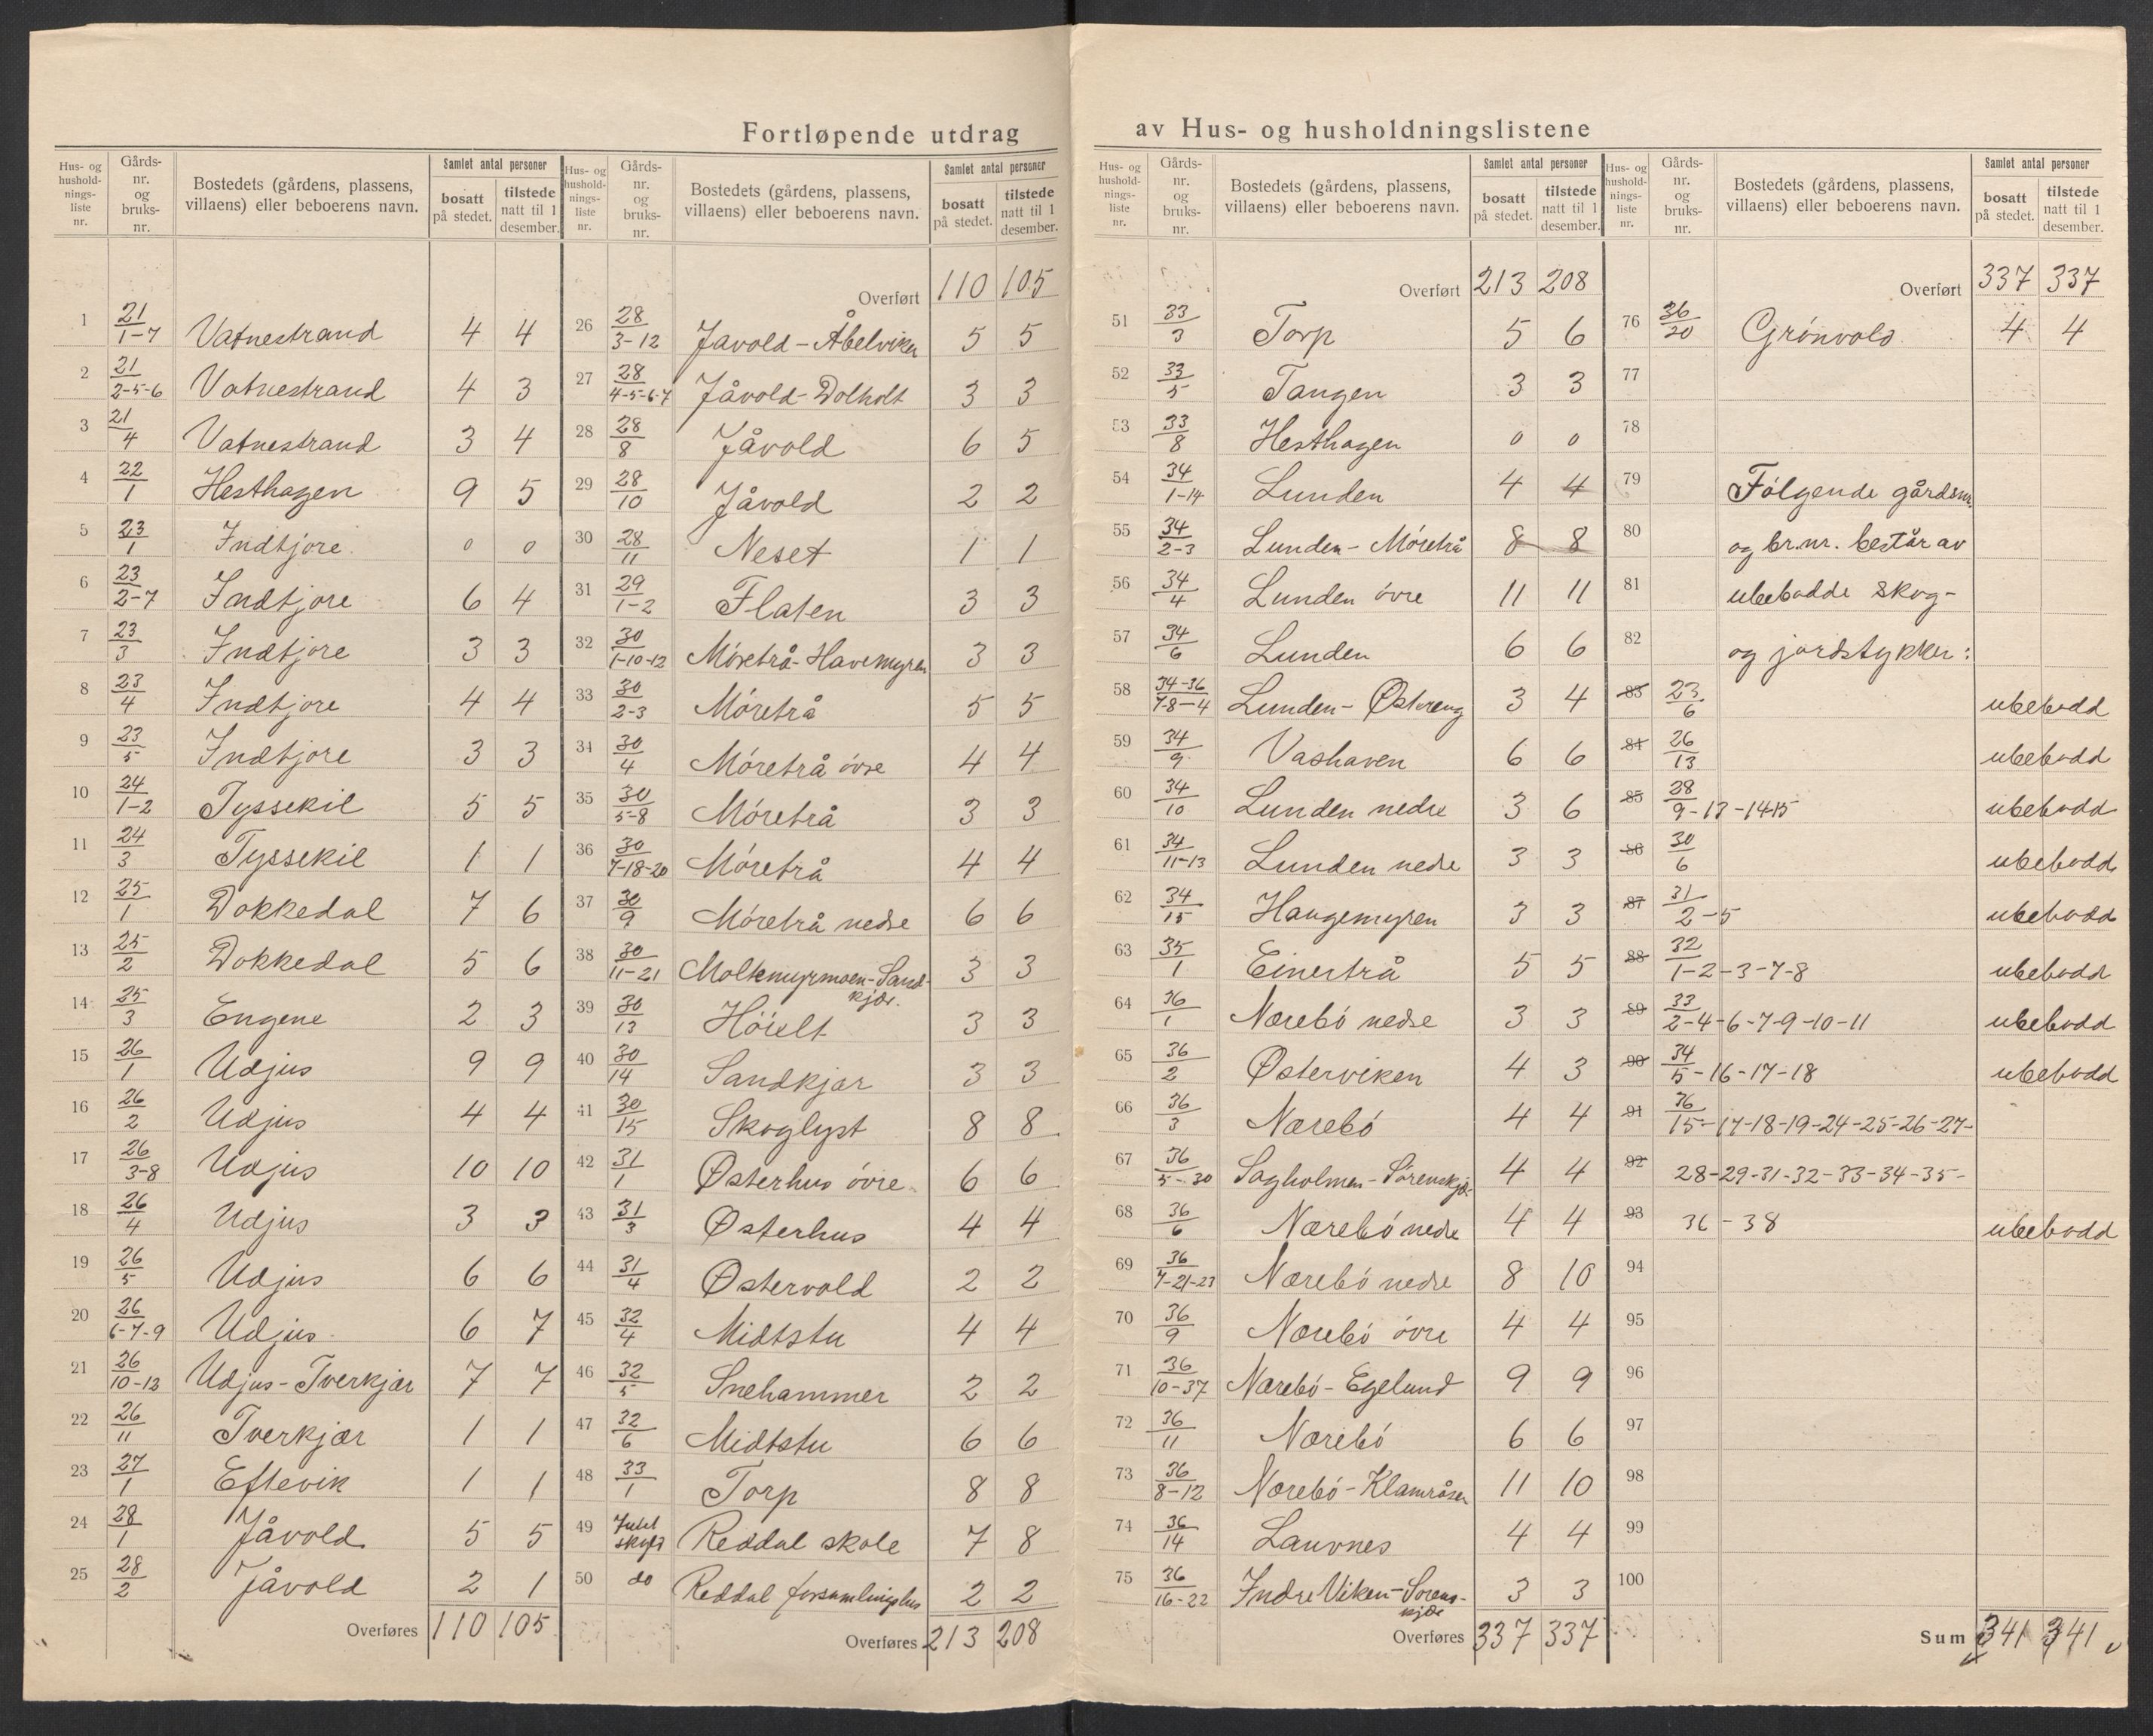 Fortløpende utdrag av Hus- og husholdningslistene
Hus- og hushold-nings-liste nr. Gårds-nr. og bruks-nr. Bostedets (gårdens, plassens, villaens) eller beboerens navn. Samlet antal personer bosatt på stedet. tilstede natt til 1 desember.
1 21/1-7 Vatnestrand 4 4
2 21/2-5-6 Vatnestrand 4 3
3 21/4 Vatnestrand 3 4
4 22/1 Hesthagen 9 5
5 23/1 Indtjore 0 0
6 23/2-7 Indtjore 6 4
7 23/3 Indtjore 3 3
8 23/4 Indtjore 4 4
9 23/5 Indtjore 3 3
10 24/1-2 Tyssekil 5 5
11 24/3 Tyssekil 1 1
12 25/1 Dokkedal 7 6
13 25/2 Dokkedal 5 6
14 25/3 Engene 2 3
15 26/1 Udjus 9 9
16 26/2 Udjus 4 4
17 26/3-8 Udjus 10 10
18 26/4 Udjus 3 3
19 26/5 Udjus 6 6
20 26/6-7-9 Udjus 6 7
21 26/10-12 Udjus-Tverkjær 7 7
22 26/11 Tverkjær 1 1
23 27/1 Eftevik 1 1
24 28/1 Jåvold 5 5
25 28/2 Jåvold 2 1
Overføres 110 105
Hus- og hushold-nings-liste nr. Gårds-nr. og bruks-nr. Bostedets (gårdens, plassens, villaens) eller beboerens navn. Samlet antal personer bosatt på stedet. tilstede natt til 1 desember.
Overført 110 105
26 28/3-12 Jåvold-Åbelviken 5 5
27 28/4-5-6-7 Jåvold-Dolholt 3 3
28 28/8 Jåvold 6 5
29 28/10 Jåvold 2 2
30 28/11 Neset 1 1
31 29/1-2 Flaten 3 3
32 30/1-10-12 Móretrå-Havemyren 3 3
33 30/2-3 Móretrå 5 5
34 30/4 Móretrå óvre 4 4
35 30/5-8 Móretrå 3 3
36 30/7-18-20 Móretrå 4 4
37 30/9 Móretrå nedre 6 6
38 30/11-21 Moltemyrmoen-Sand-kjær. 3 3
39 30/13 Hóielt 3 3
40 30/14 Sandkjær 3 3
41 30/15 Skoglyst 8 8
42 31/1 Østerhus óvre 6 6
43 31/3 Østerhus 4 4
44 31/4 Østervold 2 2
45 32/4 Midtstu 4 4
46 32/5 Snehammer 2 2
47 32/6 Midtstu 6 6
48 33/1 Torp 8 8
49 Intet skyld Reddal skole 7 8
50 do Reddal forsamlingshus 2 2
Overføres 213 208
Hus- og hushold-nings-liste nr. Gårds-nr. og bruks-nr. Bostedets (gårdens, plassens, villaens) eller beboerens navn. Samlet antal personer bosatt på stedet. tilstede natt til 1 desember.
Overført 213 208
51 33/3 Torp 5 6
52 33/5 Tangen 3 3
53 33/8 Hesthagen 0 0
54 34/1-14 Lunden 4 4
55 34/2-3 Lunden-Móretrå 8 8
56 34/4 Lunden óvre 11 11
57 34/6 Lunden 6 6
58 34-36/7-8-4 Lunden-Østereng 3 4
59 34/9 Vashaven 6 6
60 34/10 Lunden nedre 3 6
61 34/11-13 Lunden nedre 3 3
62 34/15 Haugemyren 3 3
63 35/1 Einertrå 5 5
64 36/1 Nærebó nedre 3 3
65 36/2 Østerviken 4 3
66 36/3 Nærebó 4 4
67 36/5-30 Sagholmen-Sórenskjær 4 4
68 36/6 Nærebó nedre 4 4
69 36/7-21-23 Nærebó nedre 8 10
70 36/9 Nærebó óvre 4 4
71 36/10-37 Nærebó-Egelund 9 9
72 36/11 Nærebó 6 6
73 36/8-12 Nærebó-Klamråsen 11 10
74 36/14 Lauvnes 4 4
75 36/16-22 Indre Viken-Sorens-kjær 3 3
Overføres 337 337
Hus- og hushold-nings-liste nr. Gårds-nr. og bruks-nr. Bostedets (gårdens, plassens, villaens) eller beboerens navn. Samlet antal personer bosatt på stedet. tilstede natt til 1 desember.
Overført 337 337
76 36/20 Grónvold 4 4
77
78
79 Fólgende gårdsnr.
80 og br.nr. består av
81 ubebodde skog-
82 og jordstykker:
83 23/6 ubebodd
84 26/13 ubebodd
85 28/9-13-14-15 ubebodd
86 30/6 ubebodd
87 31/2-5 ubebodd
88 32/1-2-3-7-8 ubebodd
89 33/2-4-6-7-9-10-11 ubebodd
90 34/5-16-17-18 ubebodd
91 36/15-17-18-19-24-25-26-27-
92 28-29-31-32-33-34-35-
93 36-38 ubebodd
94
95
96
97
98
99
100
Sum 341 341